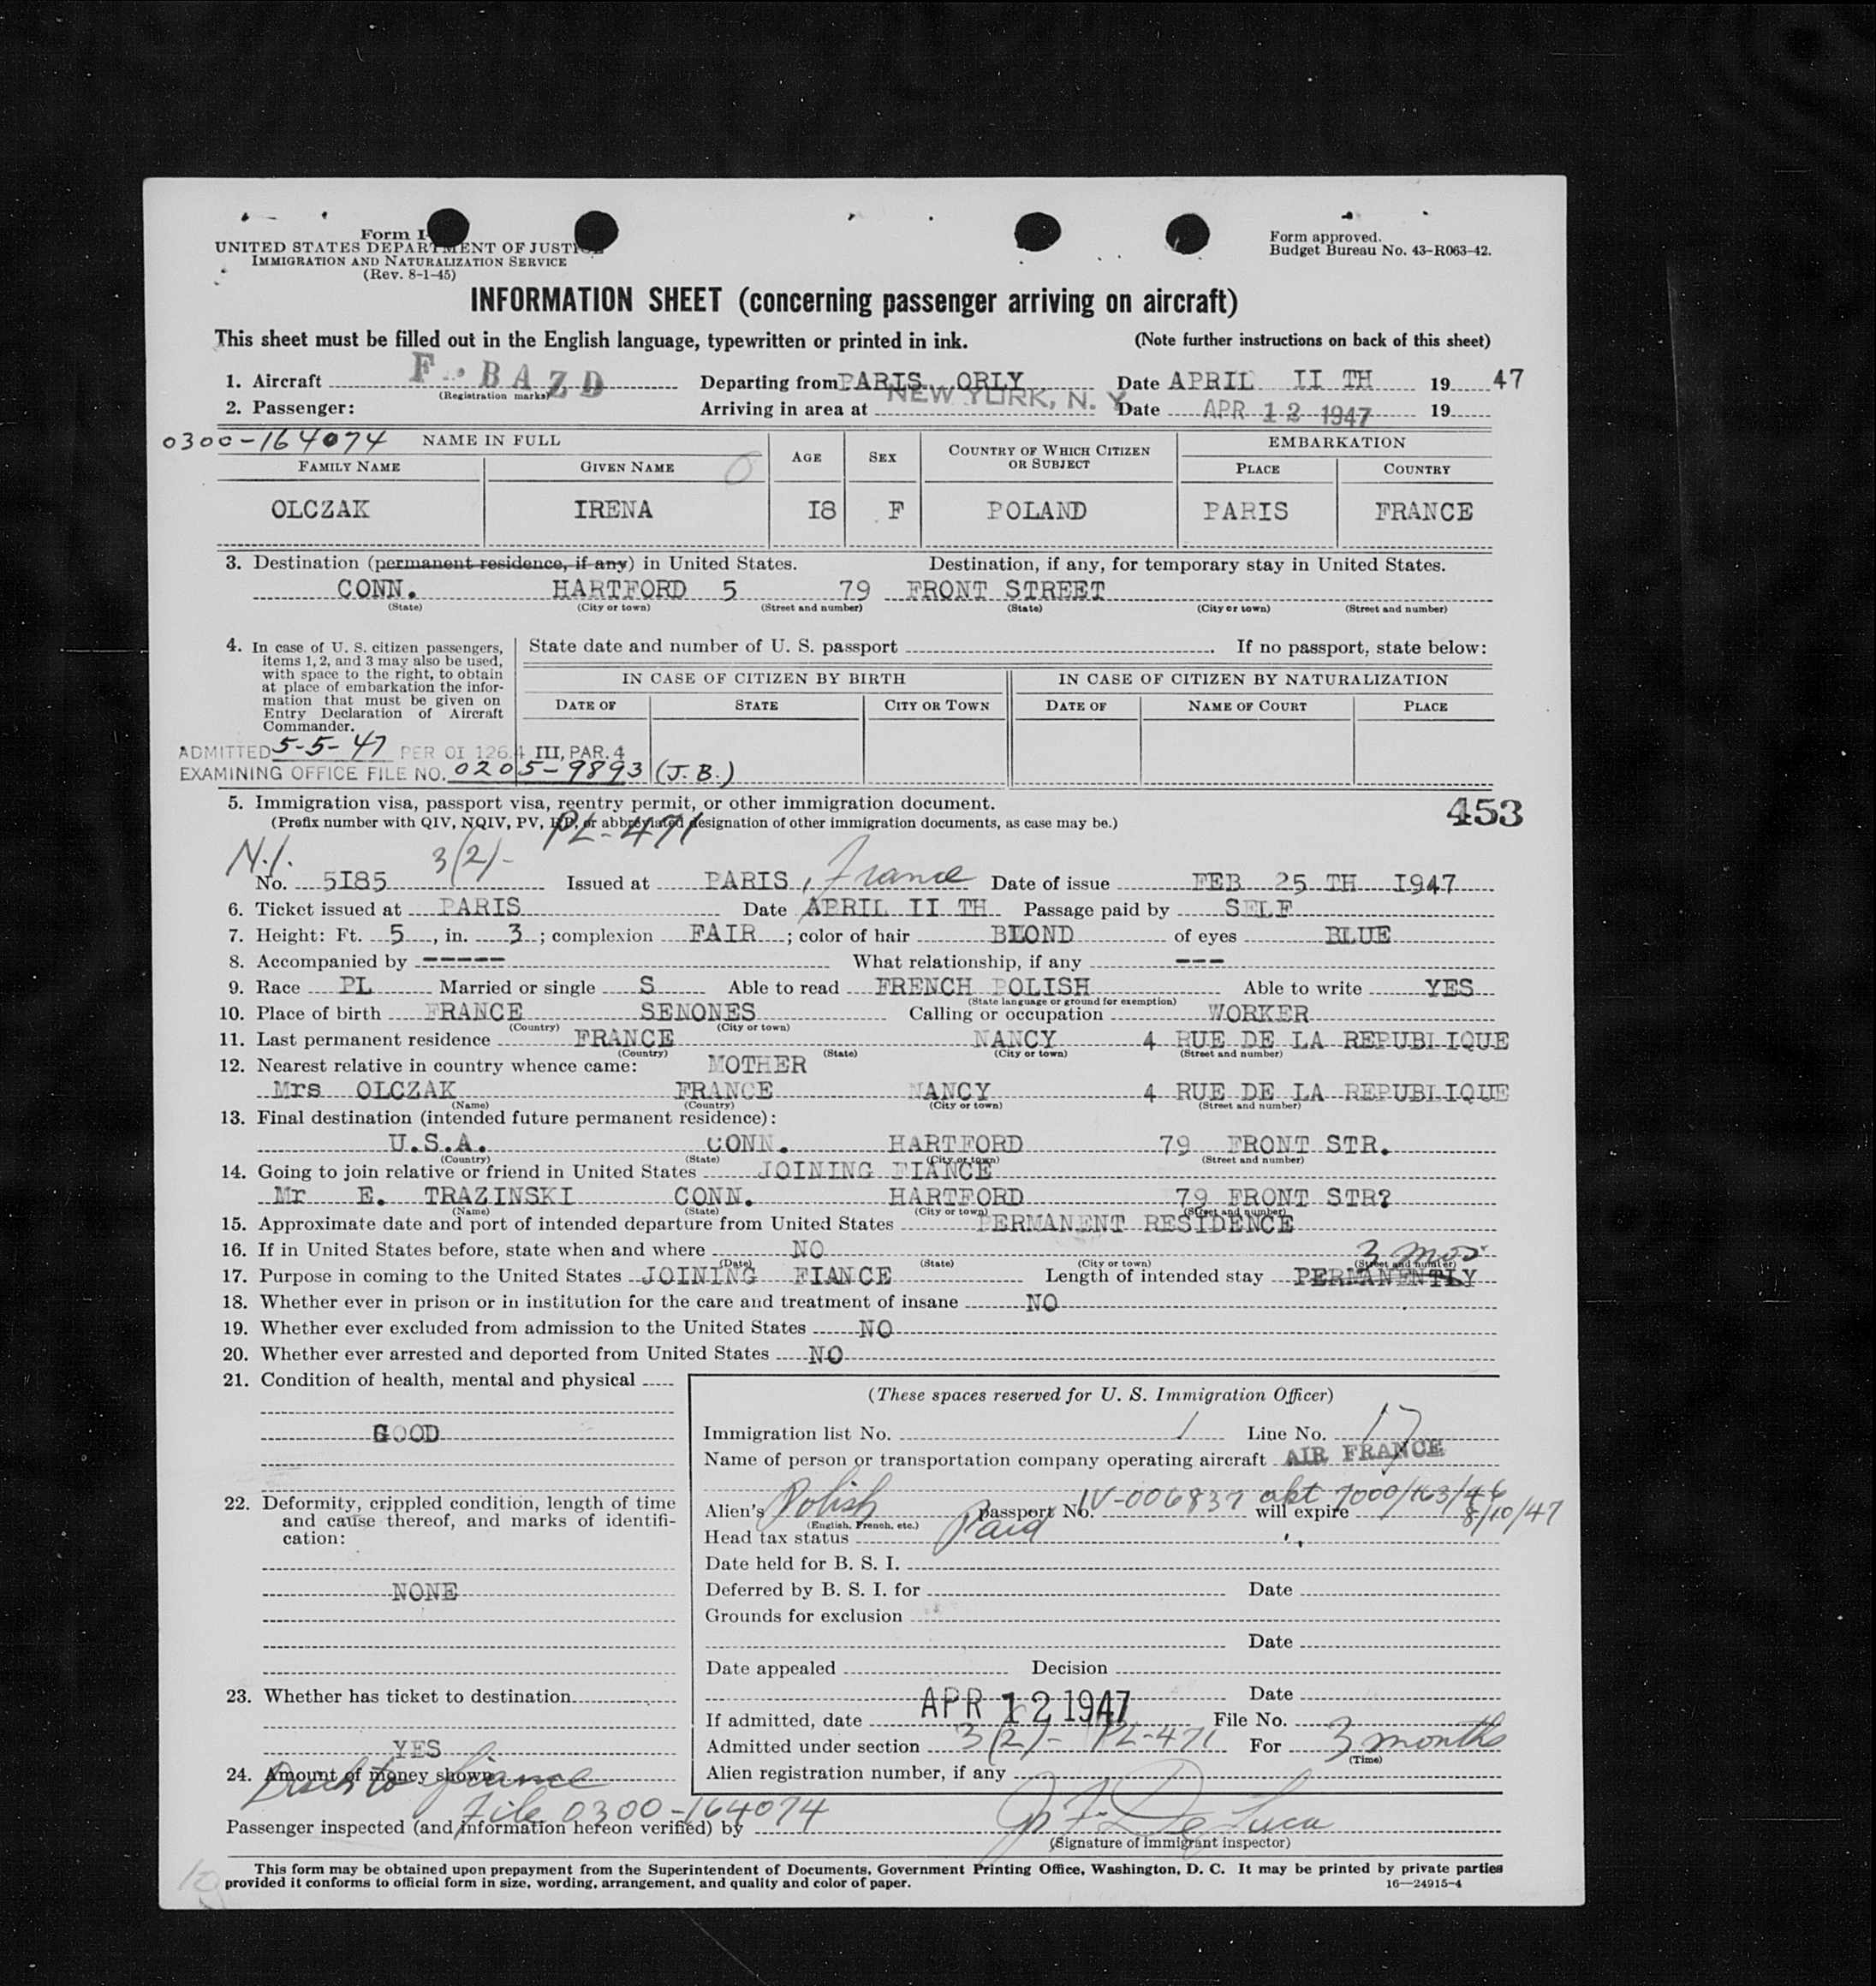 Form I-
UNITED STATES DEPARTMENT OF JUSTICE
IMMIGRATION AND NATURALIZATION SERVICE
(Rev. 8-1-45)
Form approved.
Budget Bureau No. 43-R063-42.
INFORMATION SHEET (concerning passenger arriving on aircraft)
This sheet must be filled out in the English language, typewritten or printed in ink. (Note further instructions on back of this sheet)
1. Aircraft F.BAZD (Registration marks) Departing from PARIS ORLY Date APRIL II TH 19 47
2. Passenger: Arriving in area at NEW YORK, N. Y. Date APR 12 1947 19
0300-164074 NAME IN FULL AGE SEX COUNTRY OF WHICH CITIZEN OR SUBJECT EMBARKATION
FAMILY NAME GIVEN NAME PLACE COUNTRY
OLCZAK IRENA I8 F POLAND PARIS FRANCE
3. Destination (permanent residence, if any) in United States. Destination, if any, for temporary stay in United States.
CONN. HARTFORD 5 79 FRONT STREET
(State) (City or town) (Street and number) (State) (City or town) (Street and number)
4. In case of U. S. citizen passengers, items 1, 2, and 3 may also be used, with space to the right, to obtain at place of embarkation the information that must be given on Entry Declaration of Aircraft Commander.
State date and number of U. S. passport If no passport, state below:
IN CASE OF CITIZEN BY BIRTH IN CASE OF CITIZEN BY NATURALIZATION
DATE OF STATE CITY OR TOWN DATE OF NAME OF COURT PLACE
ADMITTED 5-5-47 PER OI 126.4 III, PAR. 4
EXAMINING OFFICE FILE NO. 0205-9893 (J.B.)
5. Immigration visa, passport visa, reentry permit, or other immigration document. 453
(Prefix number with QIV, NQIV, PV, RP, or abbreviated designation of other immigration documents, as case may be.)
PL-471
N.I. 3(2)-
No. 5I85 Issued at PARIS, France Date of issue FEB 25 TH I947
6. Ticket issued at PARIS Date APRIL II TH Passage paid by SELF
7. Height: Ft. 5, in. 3; complexion FAIR; color of hair BLOND of eyes BLUE
8. Accompanied by ----- What relationship, if any ---
9. Race PL Married or single S Able to read FRENCH POLISH Able to write YES
(State language or ground for exemption)
10. Place of birth FRANCE SENONES Calling or occupation WORKER
(Country) (City or town)
11. Last permanent residence FRANCE NANCY 4 RUE DE LA REPUBLIQUE
(Country) (State) (City or town) (Street and number)
12. Nearest relative in country whence came: MOTHER
Mrs OLCZAK FRANCE NANCY 4 RUE DE LA REPUBLIQUE
(Name) (Country) (City or town) (Street and number)
13. Final destination (intended future permanent residence):
U.S.A. CONN. HARTFORD 79 FRONT STR.
(Country) (State) (City or town) (Street and number)
14. Going to join relative or friend in United States JOINING FIANCE
Mr E. TRAZINSKI CONN. HARTFORD 79 FRONT STR?
(Name) (State) (City or town) (Street and number)
15. Approximate date and port of intended departure from United States PERMANENT RESIDENCE
16. If in United States before, state when and where NO 3 mos
(Date) (State) (City or town) (Street and number)
17. Purpose in coming to the United States JOINING FIANCE Length of intended stay PERMANENTLY
18. Whether ever in prison or in institution for the care and treatment of insane NO
19. Whether ever excluded from admission to the United States NO
20. Whether ever arrested and deported from United States NO
21. Condition of health, mental and physical
GOOD
22. Deformity, crippled condition, length of time and cause thereof, and marks of identification:
NONE
23. Whether has ticket to destination
YES
24. Amount of money shown
to fiance
(These spaces reserved for U. S. Immigration Officer)
Immigration list No. 1 Line No. 17
Name of person or transportation company operating aircraft AIR FRANCE
Alien's Polish passport No. IV-006837 akt 7000/163/46 will expire 8/10/47
(English, French, etc.)
Head tax status Paid
Date held for B. S. I.
Deferred by B. S. I. for Date
Grounds for exclusion
Date
Date appealed Decision
Date
If admitted, date APR 12 1947 File No.
Admitted under section 3(2)- PL-471 For 3 months
(Time)
Alien registration number, if any
File 0300-164074
Passenger inspected (and information hereon verified) by De Luca
(Signature of immigrant inspector)
This form may be obtained upon prepayment from the Superintendent of Documents, Government Printing Office, Washington, D. C. It may be printed by private parties
provided it conforms to official form in size, wording, arrangement, and quality and color of paper. 16—24915-4